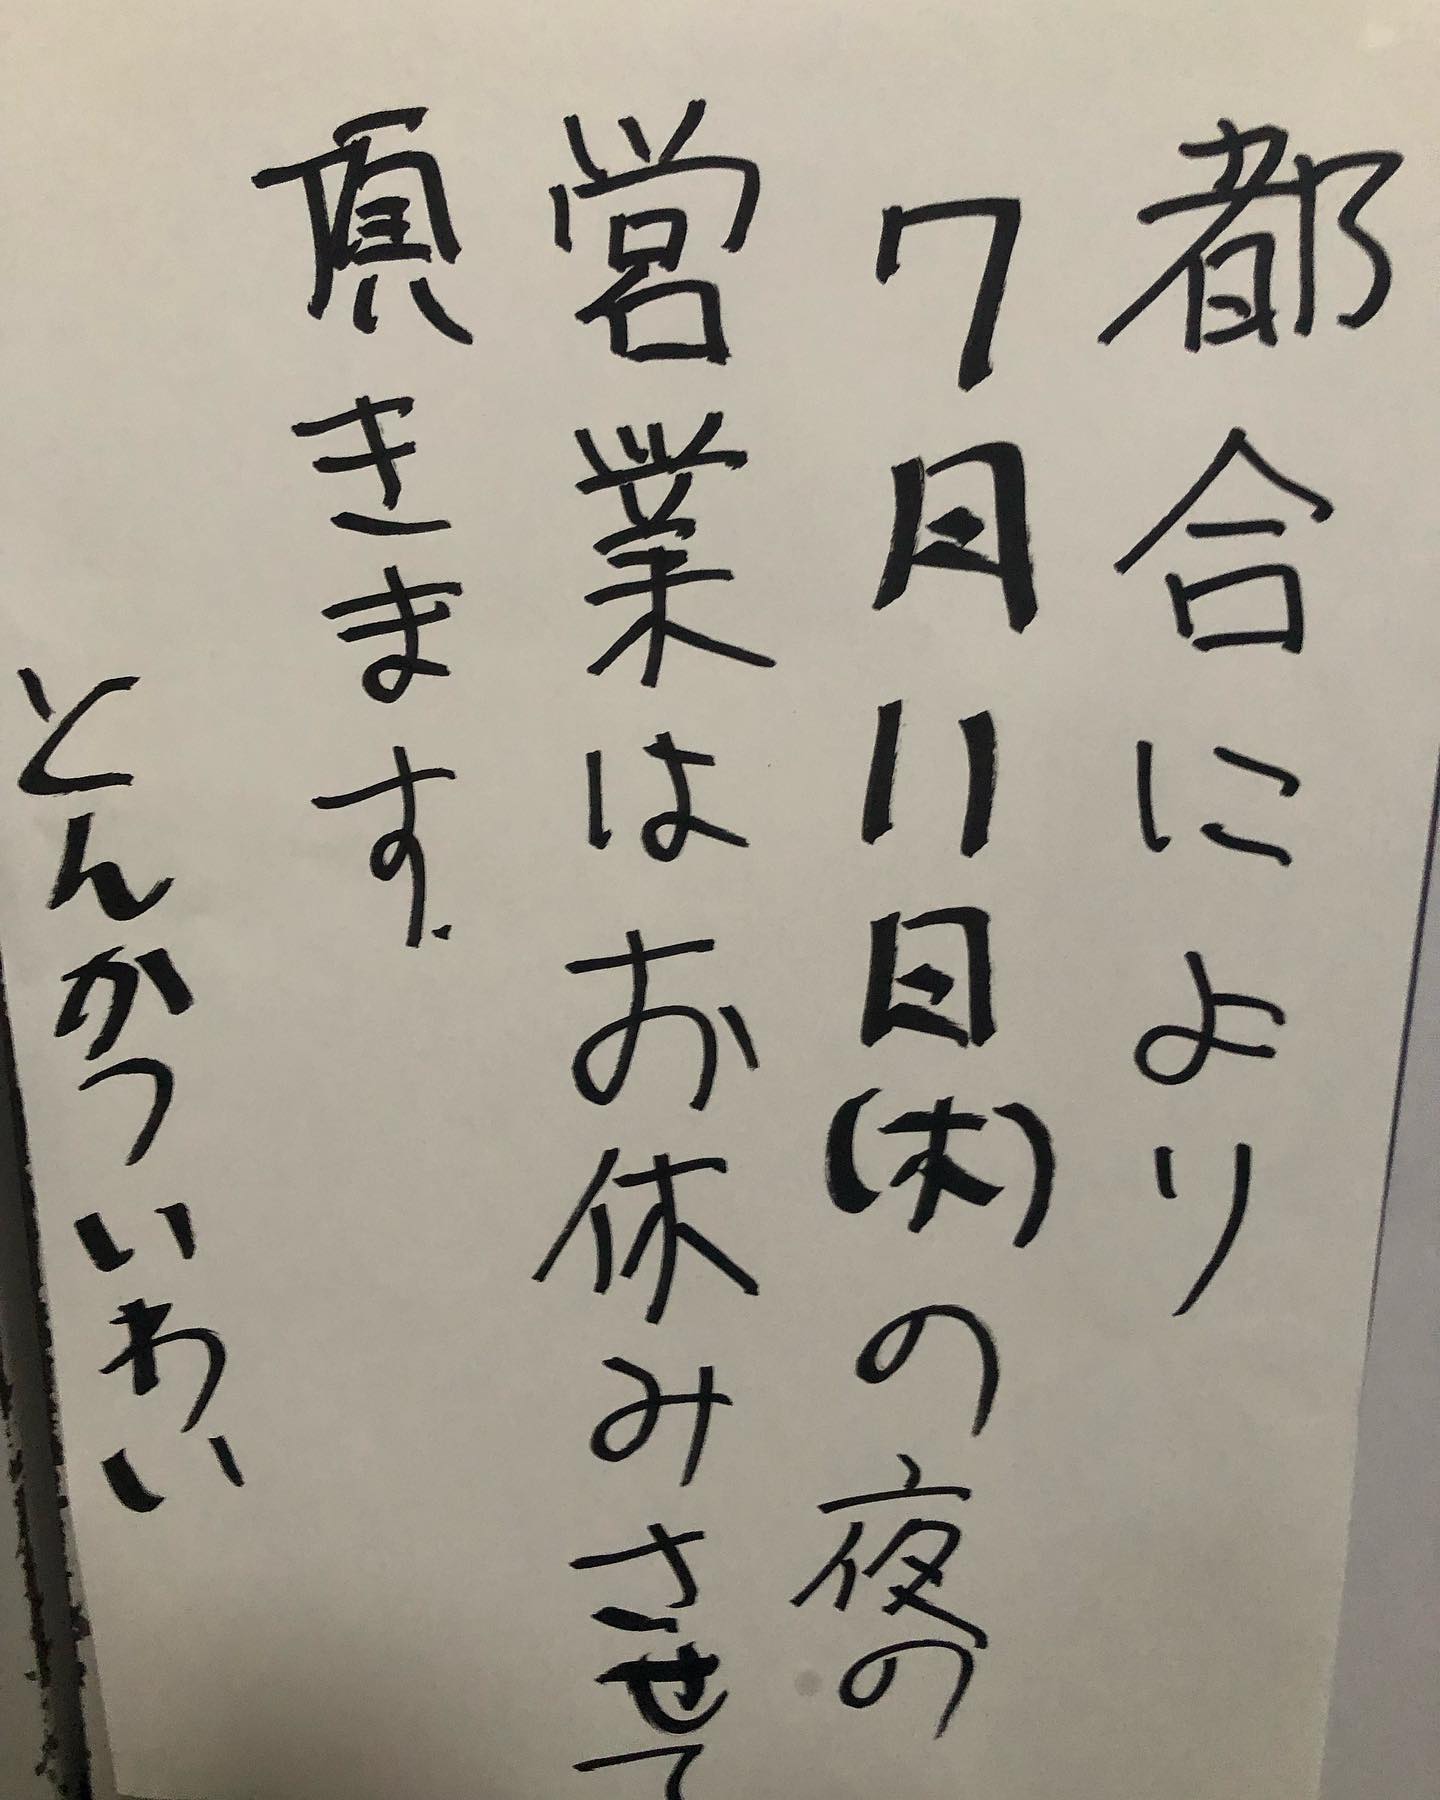 都合により
7月11日(木)の夜の
営業はお休みさせて
頂きます.
とんかついわい